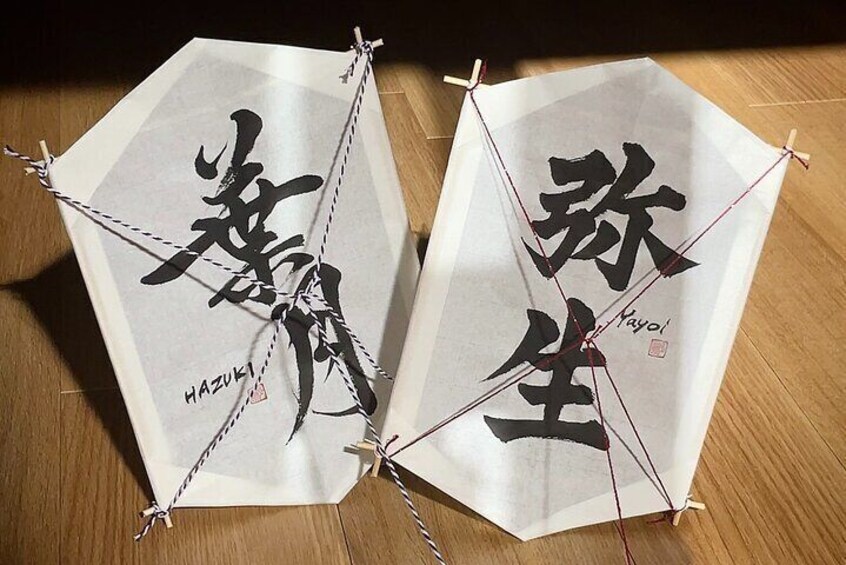 葉月
HAZUKI
弥生
Yayoi